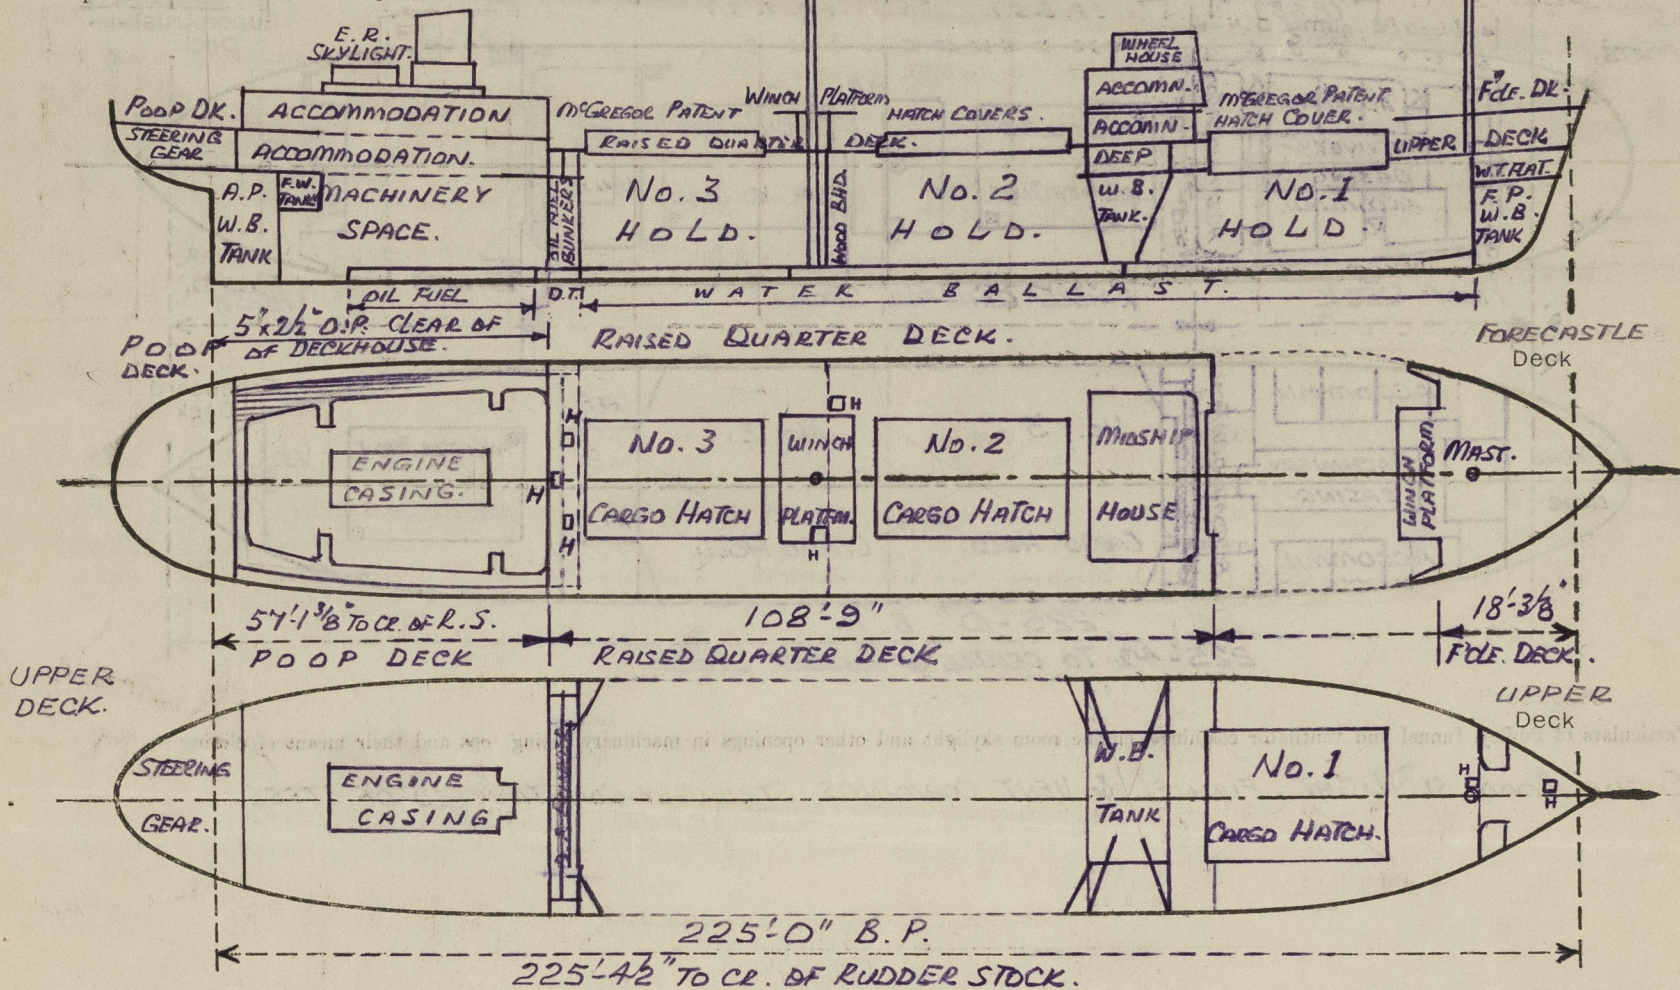 E.R.
SKYLIGHT.
WHEEL
HOUSE
POOP DK.
ACCOMMODATION
McGREGOR PATENT
WINCH
PLATFORM
HATCH COVERS.
ACCOMN.
McGREGOR PATENT
HATCH COVER.
F'CLE. DK.
STEERING
GEAR
ACCOMMODATION.
RAISED QUARTER
DECK.
ACCOMN.
UPPER
DECK
A.P.
W.B.
TANK
F.W.
TANK
MACHINERY
SPACE.
OIL FUEL
BUNKERS
No. 3
HOLD.
WOOD BHD.
No. 2
HOLD.
DEEP
W.B.
TANK.
No. 1
HOLD.
W.T. FLAT.
F.P.
W.B.
TANK
OIL FUEL
D.T.
WATER BALLAST.
5"x2½" O.P. CLEAR OF
OF DECKHOUSE.
POOP
DECK.
RAISED QUARTER DECK.
FORECASTLE
Deck
ENGINE
CASING.
H
H
H
No. 3
CARGO HATCH
H
WINCH
PLATFM.
H
No. 2
CARGO HATCH
MIDSHIP
HOUSE
WINCH
PLATFORM.
MAST.
57'-1⅜" TO CR. OF R.S.
POOP DECK
108'-9"
RAISED QUARTER DECK
18'-3⅜"
F'CLE. DECK.
UPPER
DECK.
UPPER
Deck
STEERING
GEAR.
ENGINE
CASING
W.B.
TANK
No. 1
CARGO HATCH.
H
H
225'-0" B.P.
225'-4½" TO CR. OF RUDDER STOCK.